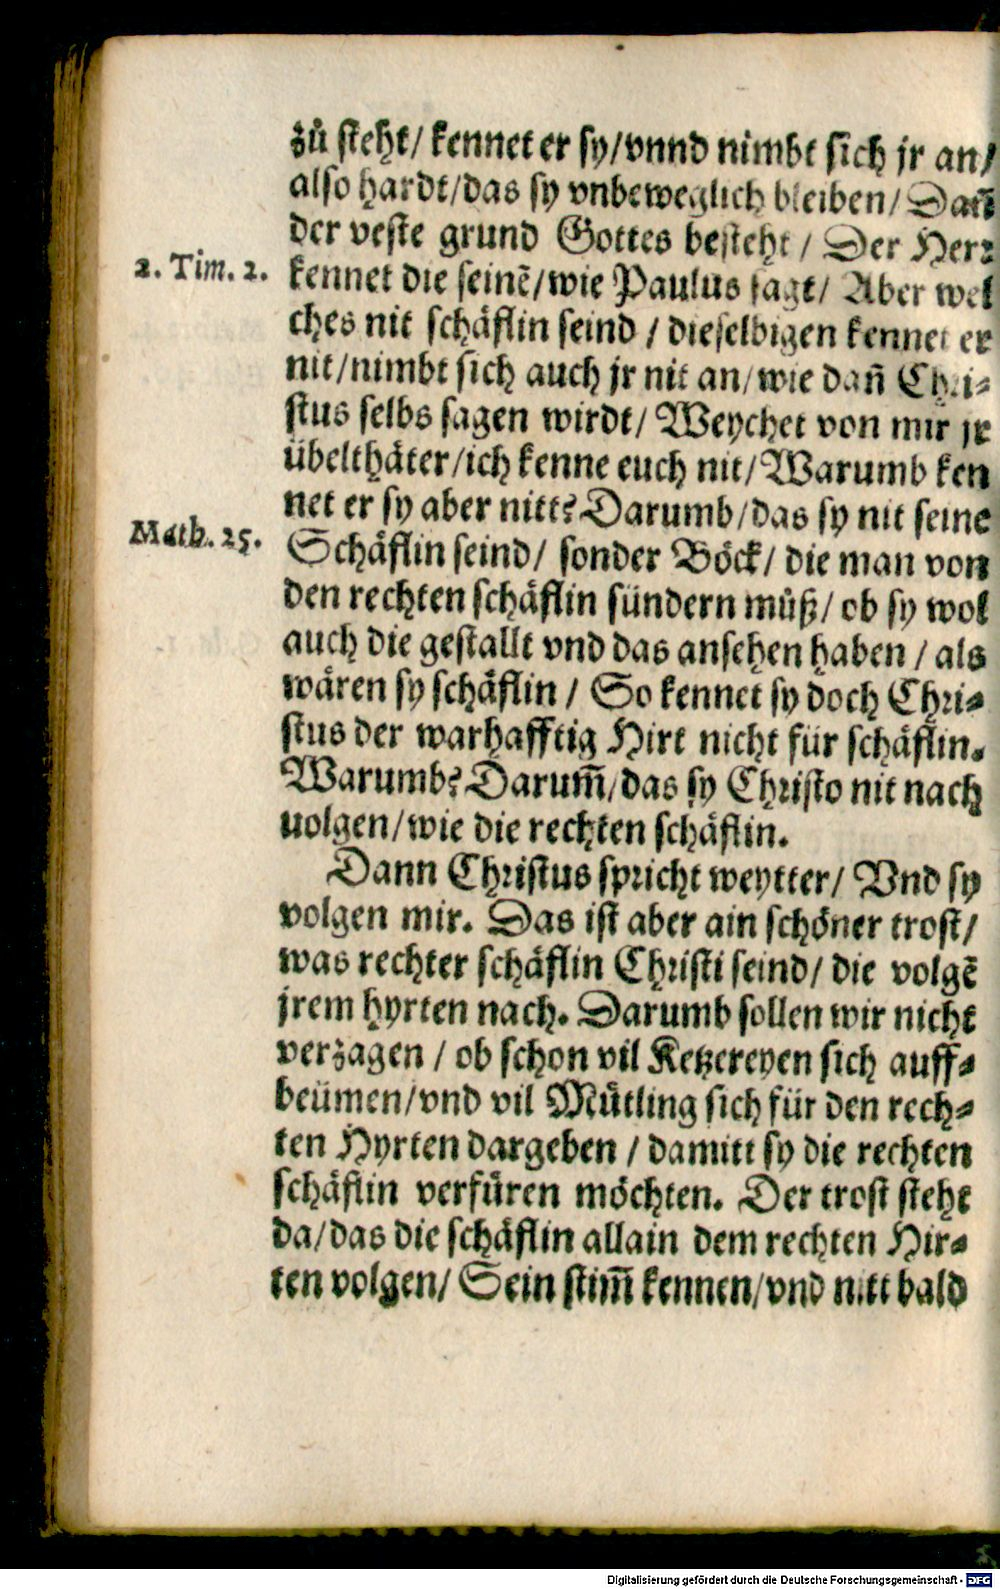 zů steht/ kennet er sy/vnnd nimbt sich jr an/
also hardt/das sy vnbeweglich bleiben/ Dañ
der veste grund Gottes besteht / Der Herꝛ
2. Tim. 2. kennet die seinē/wie Paulus sagt/ Aber wel
ches nit schäflin seind / dieselbigen kennet er
nit/nimbt sich auch jr nit an/wie dañ Chri-
stus selbs sagen wirdt/ Weychet von mir jr
übelthäter/ich kenne euch nit/Warumb ken
net er sy aber nitt? Darumb/das sy nit seine
Math. 25. Schäflin seind/ sonder Böck/ die man von
den rechten schäflin sündern můß/ ob sy wol
auch die gestallt vnd das ansehen haben / als
wären sy schäflin / So kennet sy doch Chri-
stus der warhafftig Hirt nicht für schäflin.
Warumb? Darum̃/das sy Christo nit nach
uolgen/wie die rechten schäflin.
Dann Christus spricht weytter/ Vnd sy
volgen mir. Das ist aber ain schöner trost/
was rechter schäflin Christi seind/ die volgē
jrem hyrten nach. Darumb sollen wir nicht
verzagen / ob schon vil Ketzereyen sich auff-
beümen/vnd vil Můtling sich für den rech-
ten Hyrten dargeben / damitt sy die rechten
schäflin verfüren möchten. Der trost steht
da/das die schäflin allain dem rechten Hir-
ten volgen/ Sein stim̃ kennen/vnd nitt bald
Digitalisierung gefördert durch die Deutsche Forschungsgemeinschaft - DFG